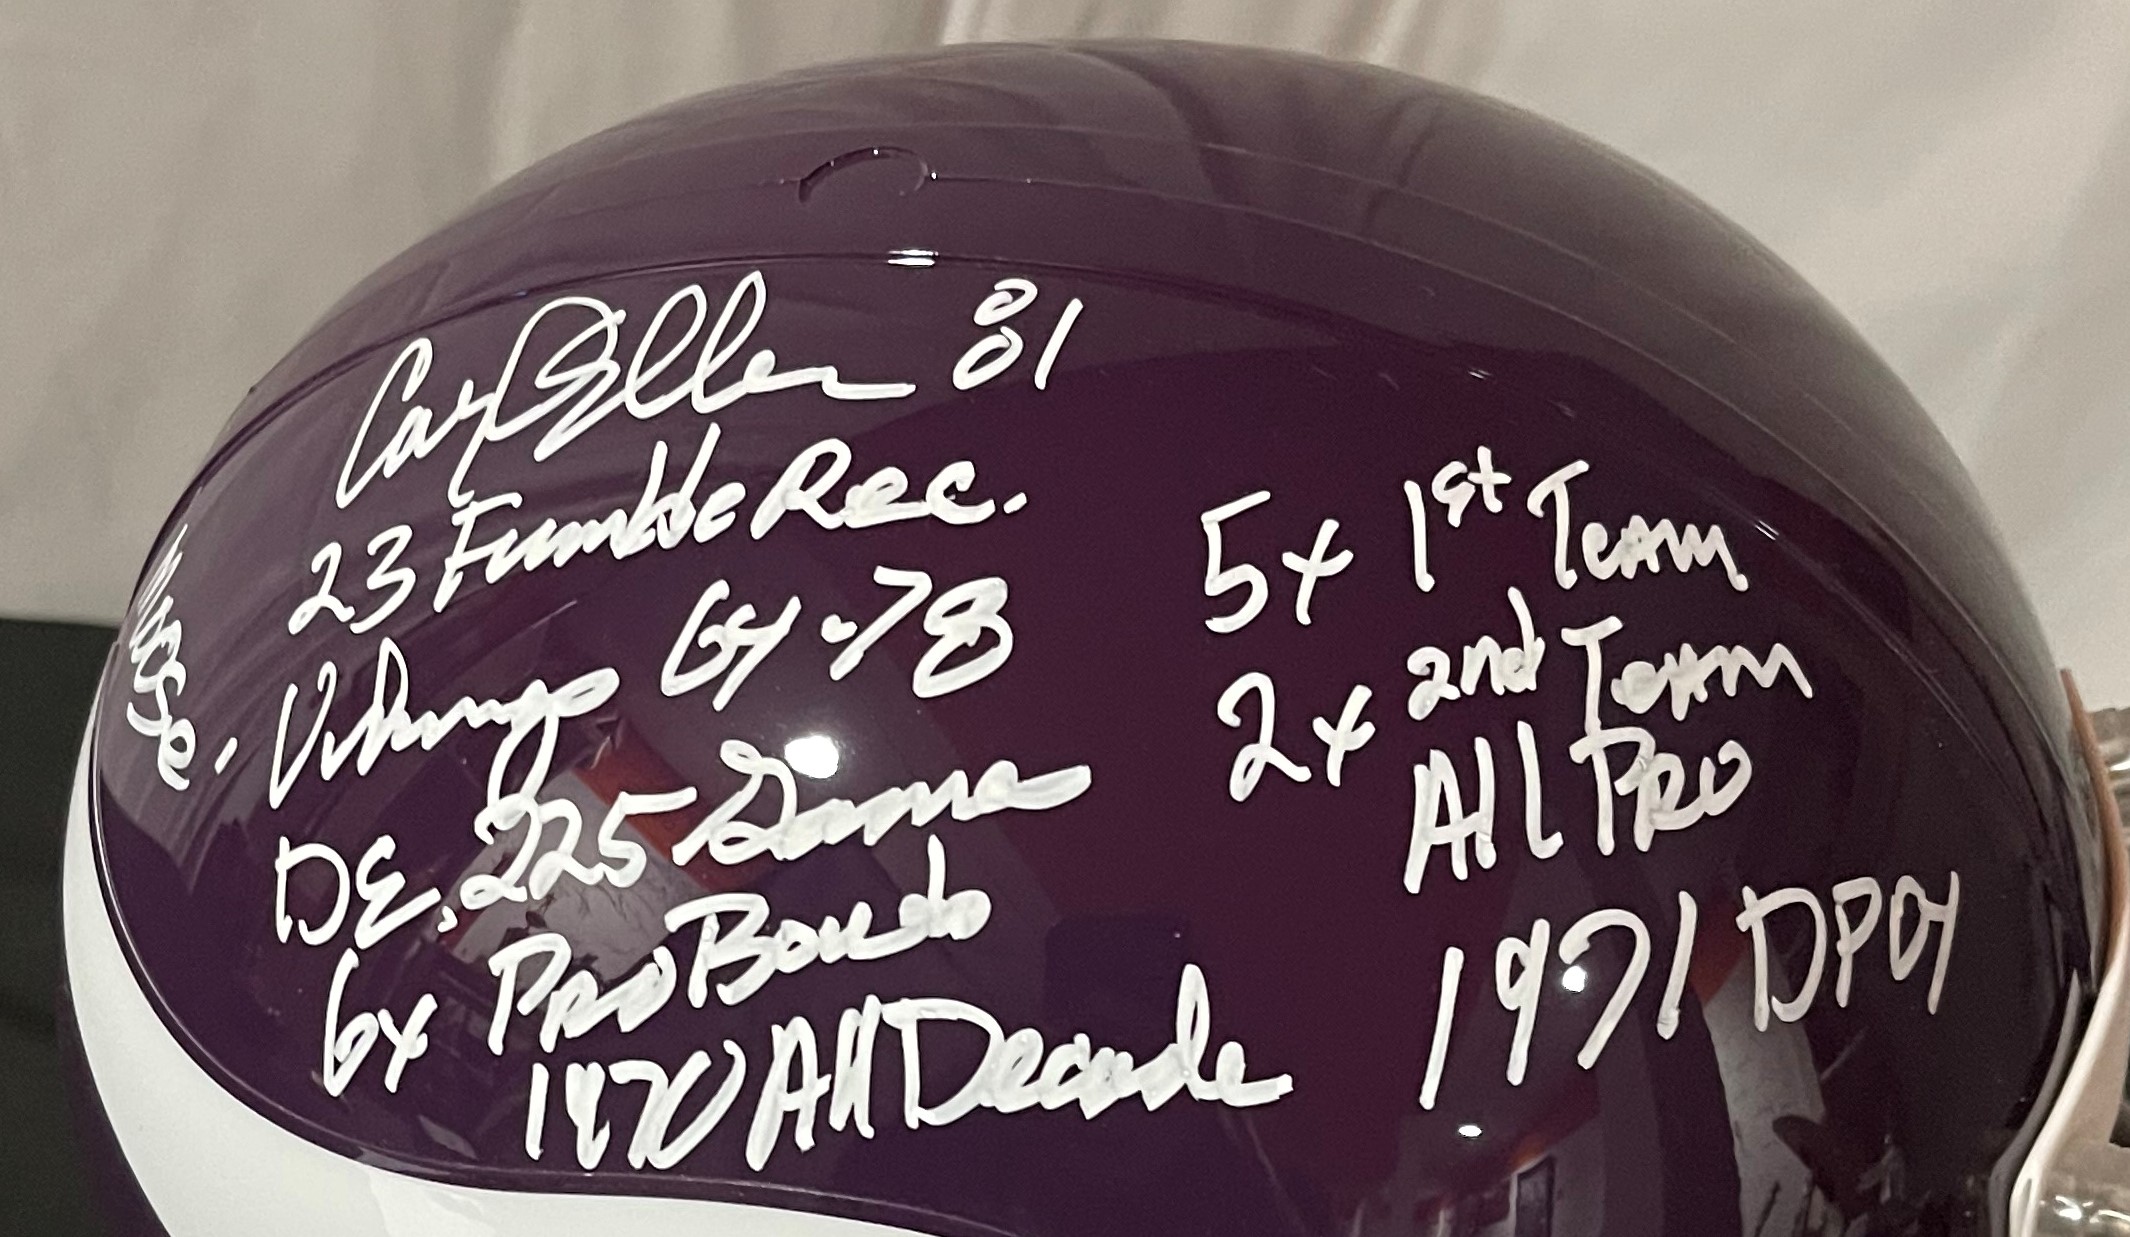 Carl Eller 81
23 Fumble Rec.
Moose.
Vikings 64-78
DE. 225 Games
6x Pro Bowls
1970 All Decade
5x 1st Team
2x 2nd Team
All Pro
1971 DPOY